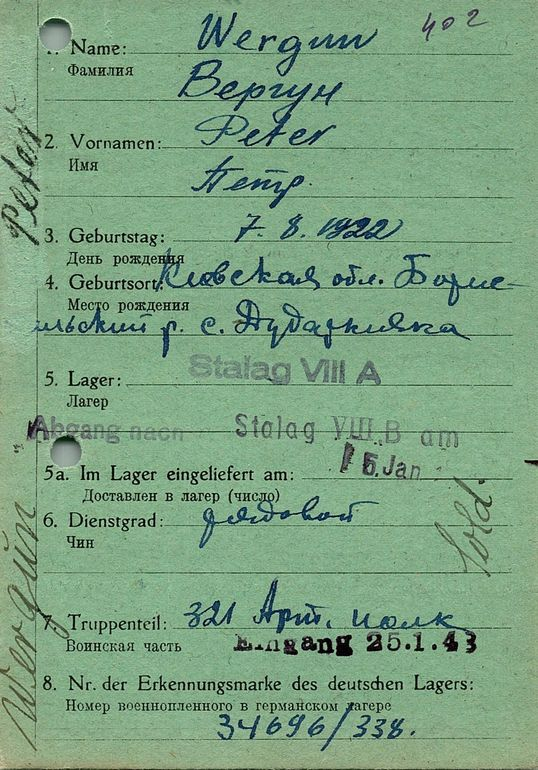 402
1. Name: Wergun
Фамилия
Вергун
2. Vornamen: Peter
Имя
Петр.
3. Geburtstag: 7. 8. 1922
День рождения
4. Geburtsort: Киевская обл. Борис-
Место рождения
ильский р. с. Дударкивка
Stalag VIII A
5. Lager:
Лагер
Abgang nach Stalag VIII B am
15. Jan
5a. Im Lager eingeliefert am:
Доставлен в лагер (число)
6. Dienstgrad: рядовой
Чин
Sold.
7. Truppenteil: 321 Арт. полк
Воинская часть
Eingang 25.1.43
8. Nr. der Erkennungsmarke des deutschen Lagers:
Номер военнопленного в германском лагере
34696/338.
Wergun Peter